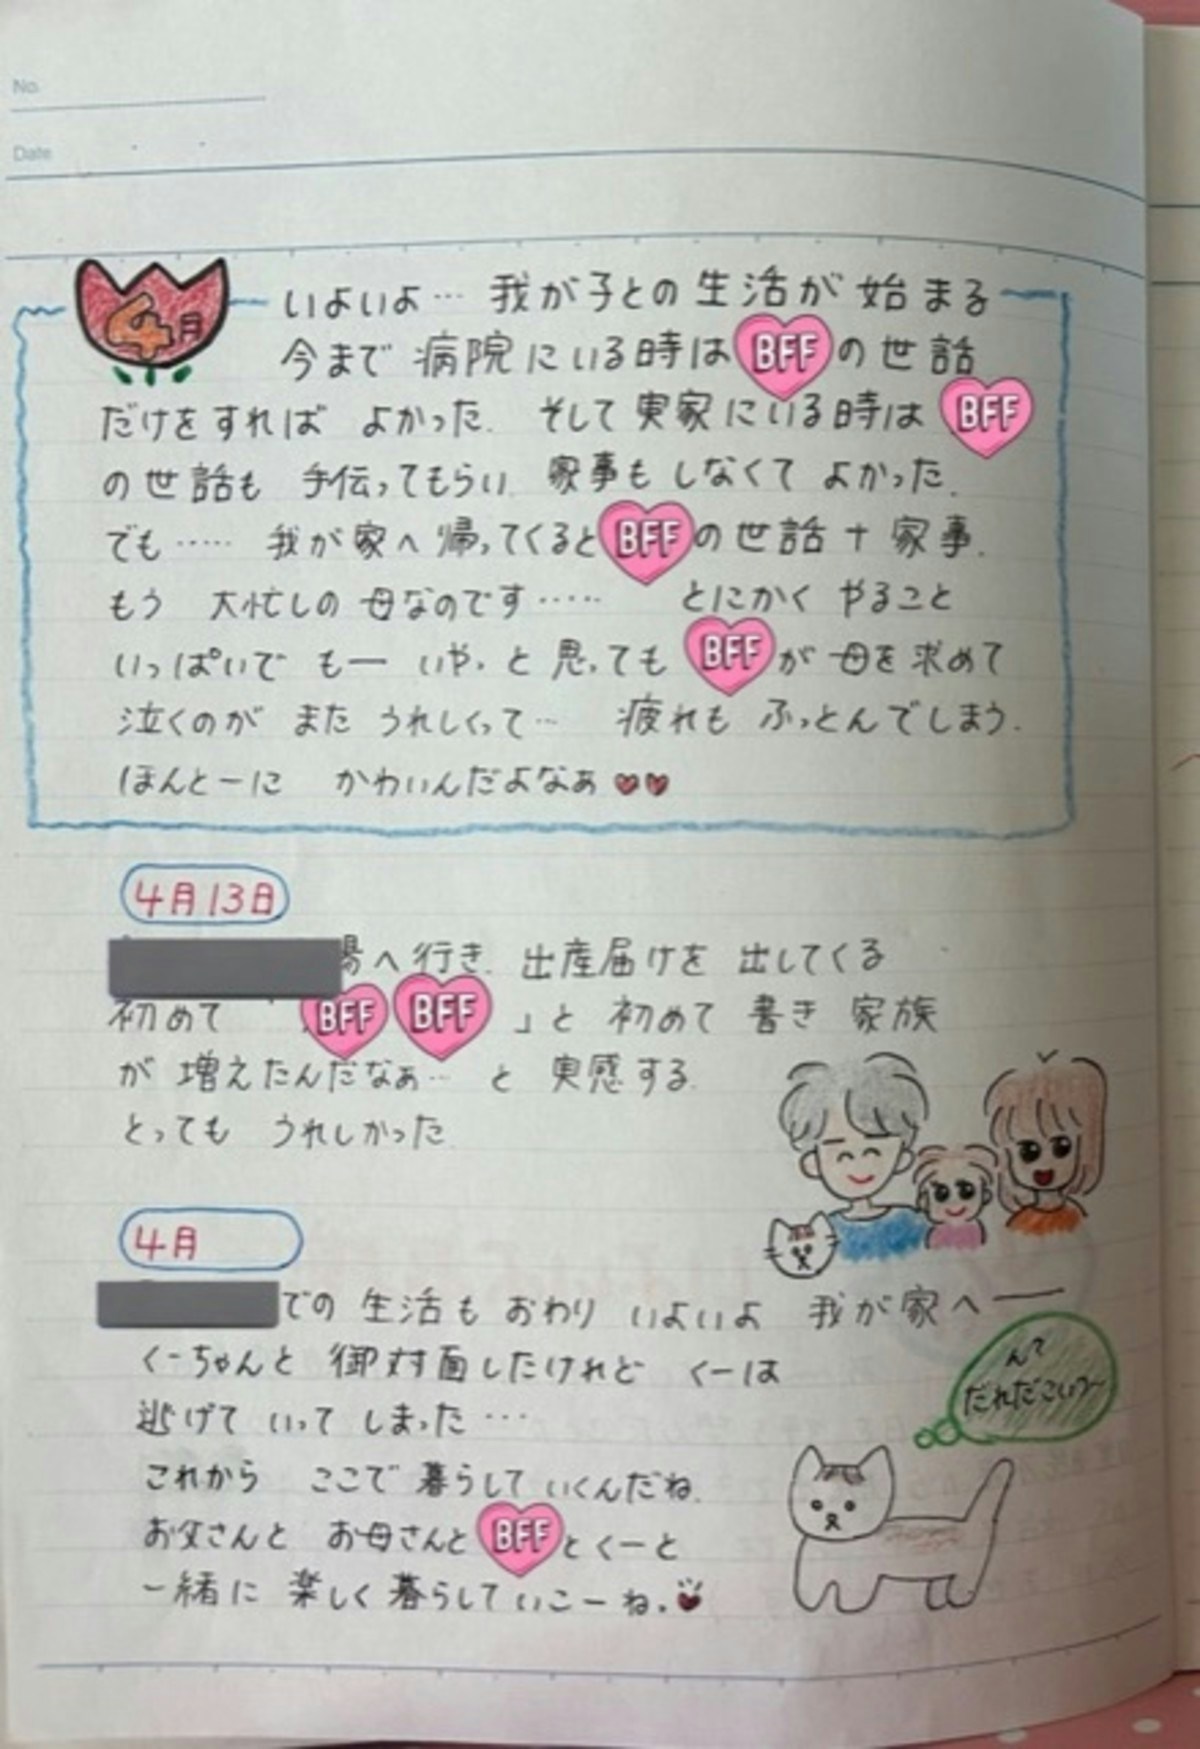 No.
Date
4月
いよいよ… 我が子との生活が始まる
今まで 病院にいる時は BFF の世話
だけをすれば よかった. そして 実家にいる時は BFF
の世話も 手伝ってもらい 家事も しなくて よかった.
でも…… 我が家へ 帰ってくると BFF の世話 + 家事.
もう 大忙しの 母なのです…… とにかく やること
いっぱいで もー いや. と 思っても BFF が 母を求めて
泣くのが また うれしくって… 疲れも ふっとんでしまう.
ほんとーに かわいんだよなぁ ♥♥
4月13日
場へ行き. 出産届けを 出してくる
初めて 「 BFF BFF 」と 初めて 書き 家族
が 増えたんだなぁ… と 実感する.
とっても うれしかった
4月
での 生活も おわり いよいよ 我が家へ――
くーちゃんと 御対面したけれど くーは
逃げて いって しまった…
んて
だれだこいつ〜
これから ここで 暮らして いくんだね.
お父さんと お母さんと BFF と くーと
一緒に 楽しく 暮らして いこーね. ♥